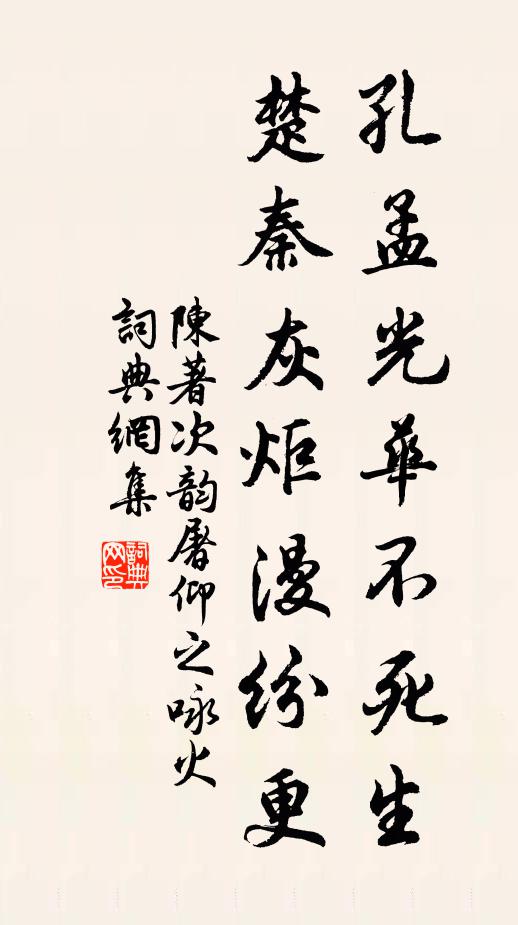 孔孟光華不死生
楚秦灰炬漫紛更
陳著次韵屠仰之咏火
詞典網集
詞典網印